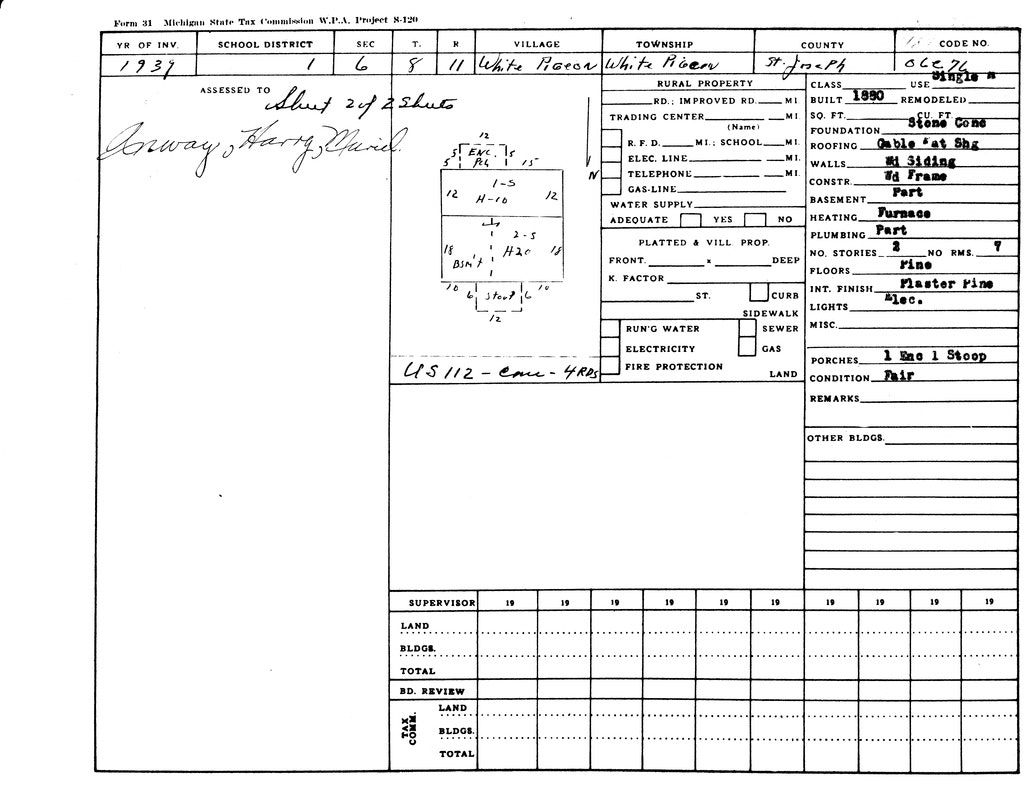 Form 31 Michigan State Tax Commission W.P.A. Project S-120
YR OF INV. SCHOOL DISTRICT SEC T. R VILLAGE TOWNSHIP COUNTY CODE NO.
1939 1 6 8 11 White Pigeon White Pigeon St. Joseph
ASSESSED TO
Sheet 2 of 2 Sheets
Anway, Harry, Muriel.
12
5 ENC. 5
5 Pch 15
1-S
12 H-10 12
2-S
18 H20 18
Bsm't
10 10
6 Stoop 6
12
N
US 112 - Conc - 4RDS
RURAL PROPERTY
RD.; IMPROVED RD. MI.
TRADING CENTER MI.
(Name)
R. F. D. MI.; SCHOOL MI.
ELEC. LINE MI.
TELEPHONE MI.
GAS-LINE
WATER SUPPLY
ADEQUATE YES NO
PLATTED & VILL PROP.
FRONT. x DEEP
K. FACTOR
ST. CURB
SIDEWALK
RUN'G WATER SEWER
ELECTRICITY GAS
FIRE PROTECTION
LAND
CLASS USE Single
BUILT 1880 REMODELED
SQ. FT. CU. FT.
FOUNDATION Stone Conc
ROOFING Gable at Shg
WALLS Wd Siding
CONSTR. Wd Frame
BASEMENT Part
HEATING Furnace
PLUMBING Part
NO. STORIES 2 NO RMS. 7
FLOORS Pine
INT. FINISH Plaster Pine
LIGHTS Elec.
MISC.
PORCHES 1 Enc 1 Stoop
CONDITION Fair
REMARKS
OTHER BLDGS.
SUPERVISOR 19 19 19 19 19 19 19 19 19 19
LAND
BLDGS.
TOTAL
BD. REVIEW
TAX COMM.
LAND
BLDGS.
TOTAL